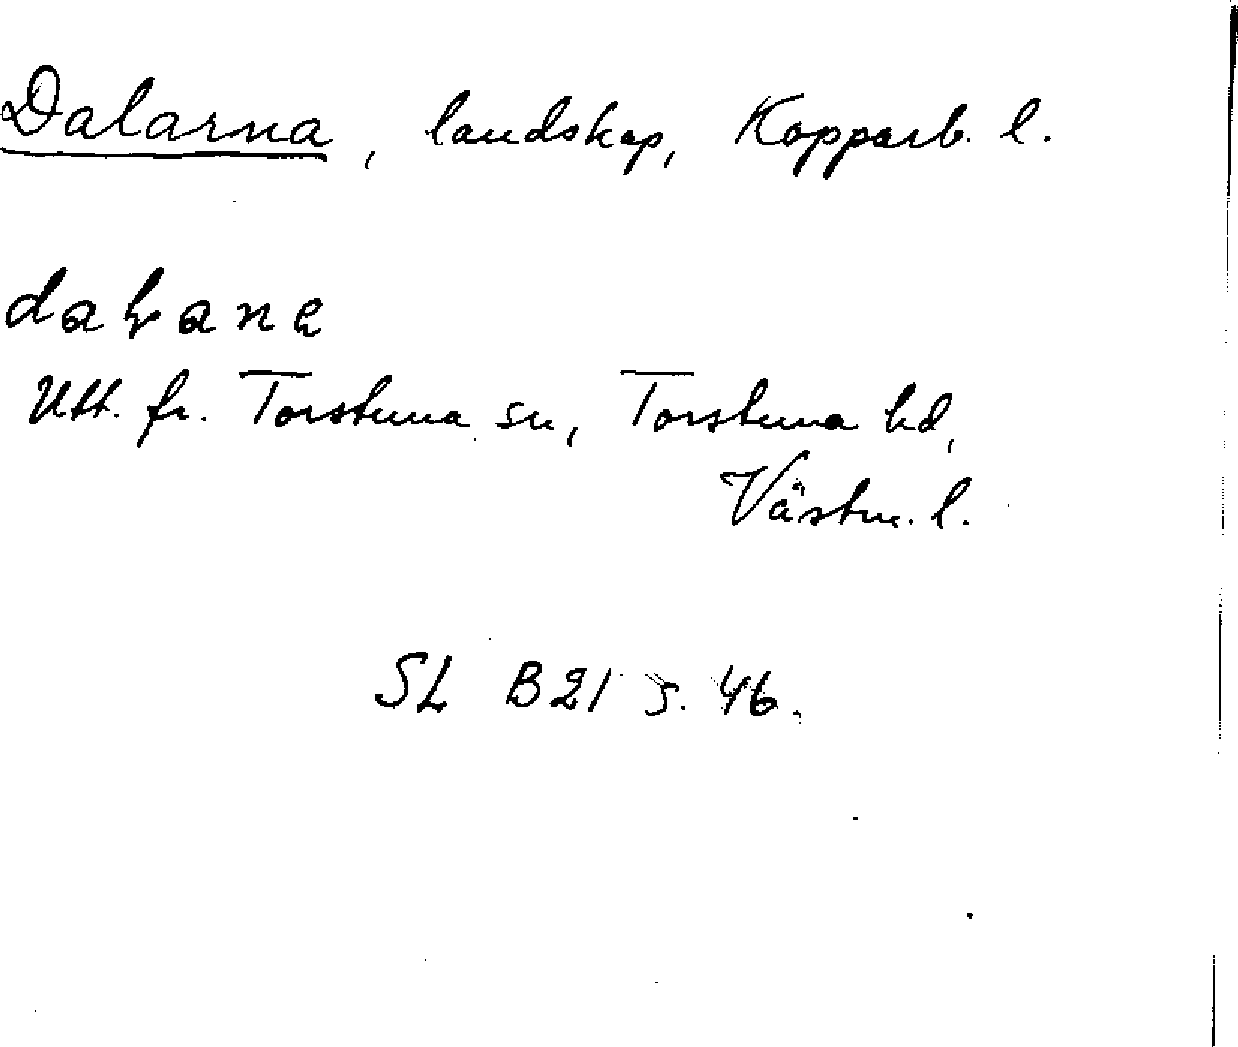 Dalarna, landskap, Kopparb. l.
daɫana
Utt. fr. Torstuna sn, Torstuna hd,
Västm. l.
SL B21 s. 46.